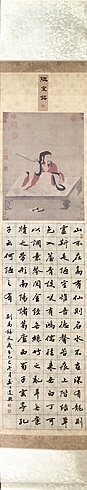 陋室銘
山不在高有仙則名水不在深有龍則
靈斯是陋室惟吾德馨苔痕上階綠草
色入簾青談笑有鴻儒往來無白丁可
以調素琴閱金經無絲竹之亂耳無案
牘之勞形南陽諸葛廬西蜀子雲亭孔
子云何陋之有
劉禹錫